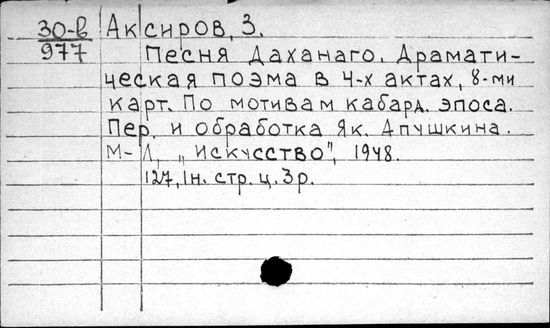 30-в Аксиров, З.
977 Песня Даханаго. Драмати-
ческая поэма в 4-х актах, 8-ми
карт. По мотивам кабард. эпоса.
Пер. и обработка Як. Апушкина.
М-Л, „Искусство", 1948.
127, 1н. стр. ц. 3р.